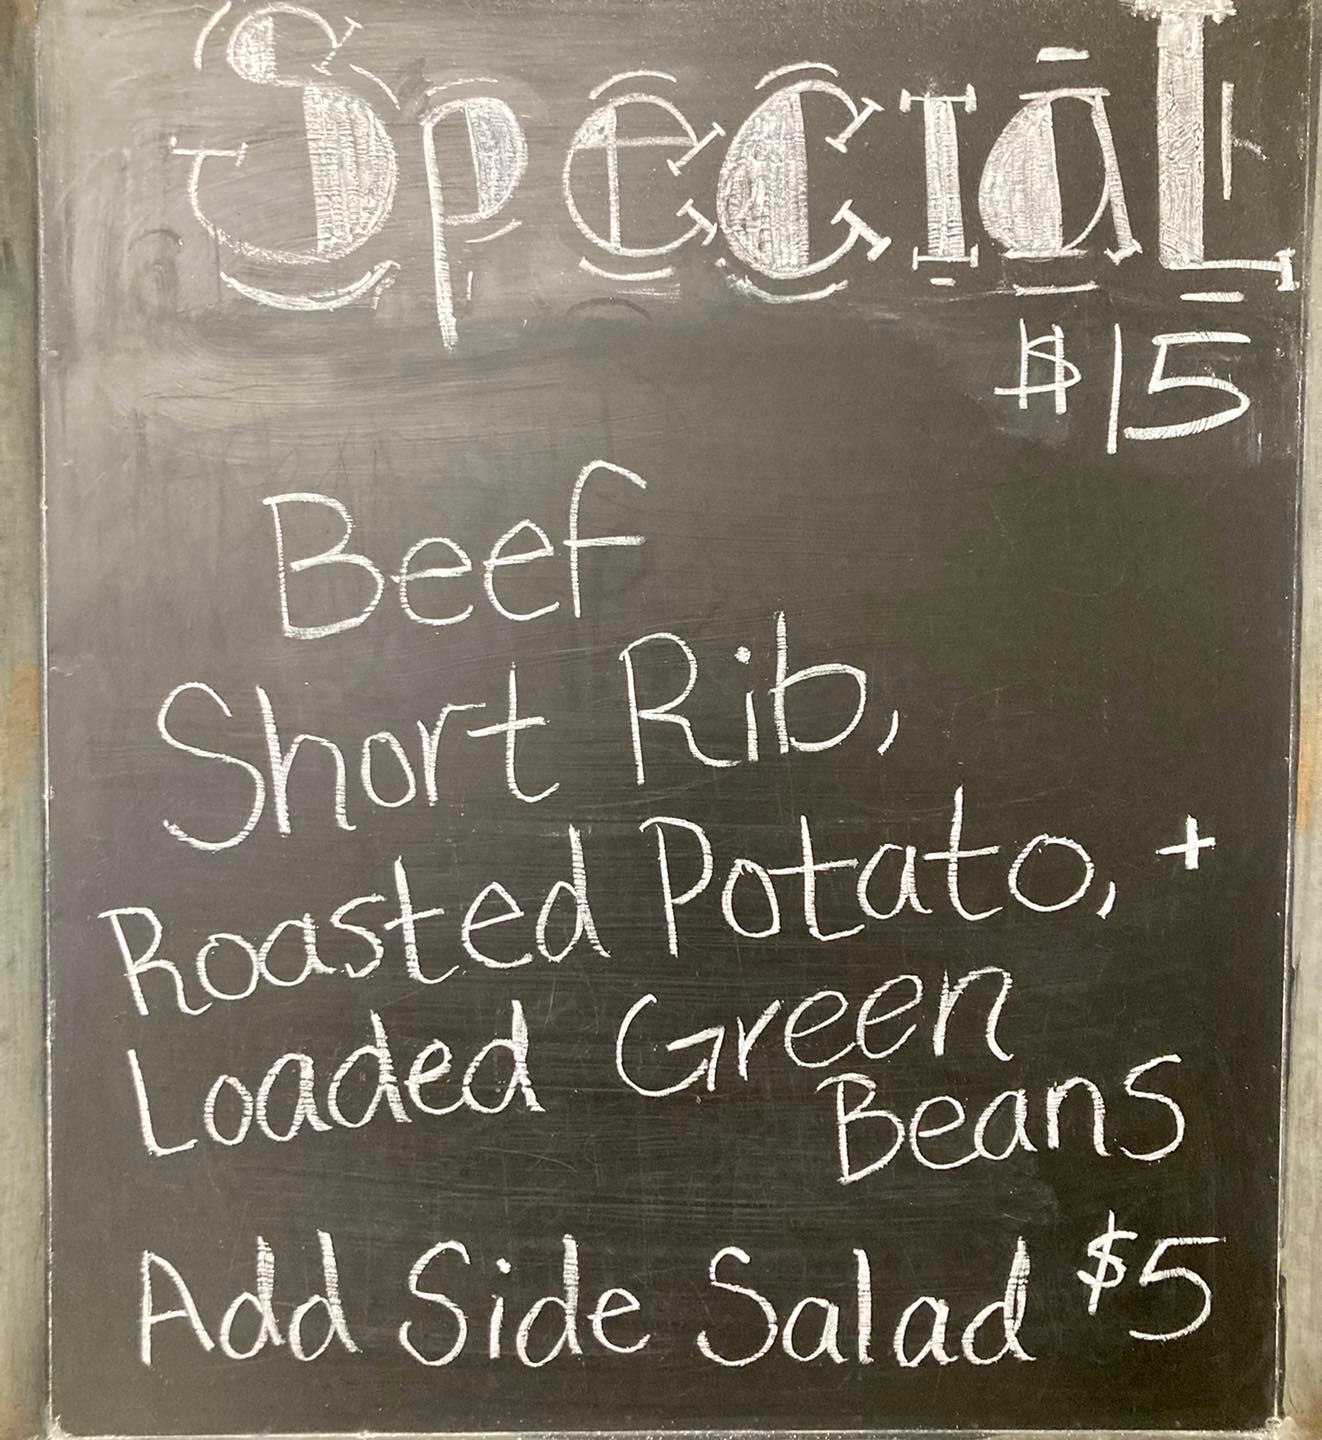 Special
$15
Beef
Short Rib,
Roasted Potato, +
Loaded Green
Beans
Add Side Salad $5